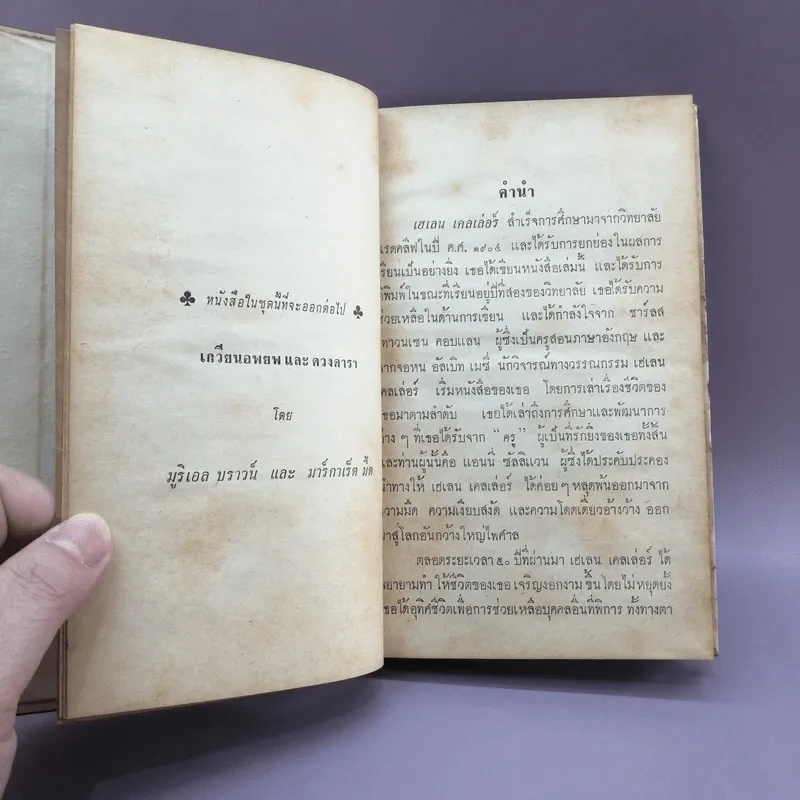 ♣ หนังสือในชุดนี้ที่จะออกต่อไป ♣
เกวียนอพยพ และ ดวงดารา
โดย
มูริเอล บราวน์ และ มาร์กาเร็ต มี้ด
คำนำ
เฮเลน เคลเล่อร์ สำเร็จการศึกษามาจากวิทยาลัย
แรดคลิฟในปี ค.ศ. ๑๙๐๔ และได้รับการยกย่องในผลการ
เรียนเป็นอย่างยิ่ง เธอได้เขียนหนังสือเล่มนี้ และได้รับ
ตีพิมพ์ในขณะที่เรียนอยู่ปีที่สองของวิทยาลัย เธอได้รับความ
ช่วยเหลือในด้านการเขียน และได้กำลังใจจาก ชาร์ลส
ทาวนเซน คอบแลน ผู้ซึ่งเป็นครูสอนภาษาอังกฤษ และ
จากจอหน อัลเบิท เมซี่ นักวิจารณ์ทางวรรณกรรม เฮเลน
เคลเล่อร์ เริ่มหนังสือของเธอ โดยการเล่าเรื่องชีวิตของ
เธอมาตามลำดับ เธอได้เล่าถึงการศึกษาและพัฒนาการ
ต่าง ๆ ที่เธอได้รับจาก "ครู" ผู้เป็นที่รักยิ่งของเธอทั้งสิ้น
และท่านผู้นั้นคือ แอนนี่ ซัลลิแวน ผู้ซึ่งได้ประคับประคอง
นำทางให้ เฮเลน เคลเล่อร์ ได้ค่อยๆ หลุดพ้นออกมาจาก
ความมืด ความเงียบสงัด และความโดดเดี่ยวอ้างว้าง ออก
มาสู่โลกอันกว้างใหญ่ไพศาล
ตลอดระยะเวลา ๕๐ ปีที่ผ่านมา เฮเลน เคลเล่อร์ ได้
พยายามทำ ให้ชีวิตของเธอ เจริญงอกงาม ขึ้น โดยไม่หยุดยั้ง
เธอได้อุทิศชีวิตเพื่อการช่วยเหลือบุคคลอื่นที่พิการ ทั้งทางตา